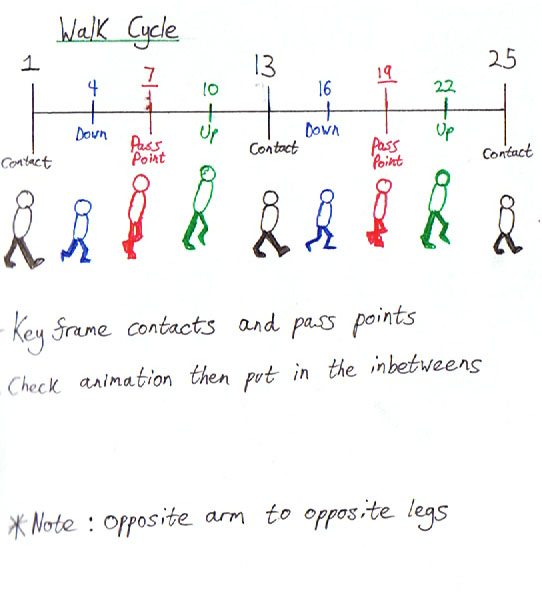 Walk Cycle
1 4 7 10 13 16 19 22 25
Contact Down Pass Point Up Contact Down Pass Point Up Contact
Key frame contacts and pass points
Check animation then put in the inbetweens
*Note : opposite arm to opposite legs